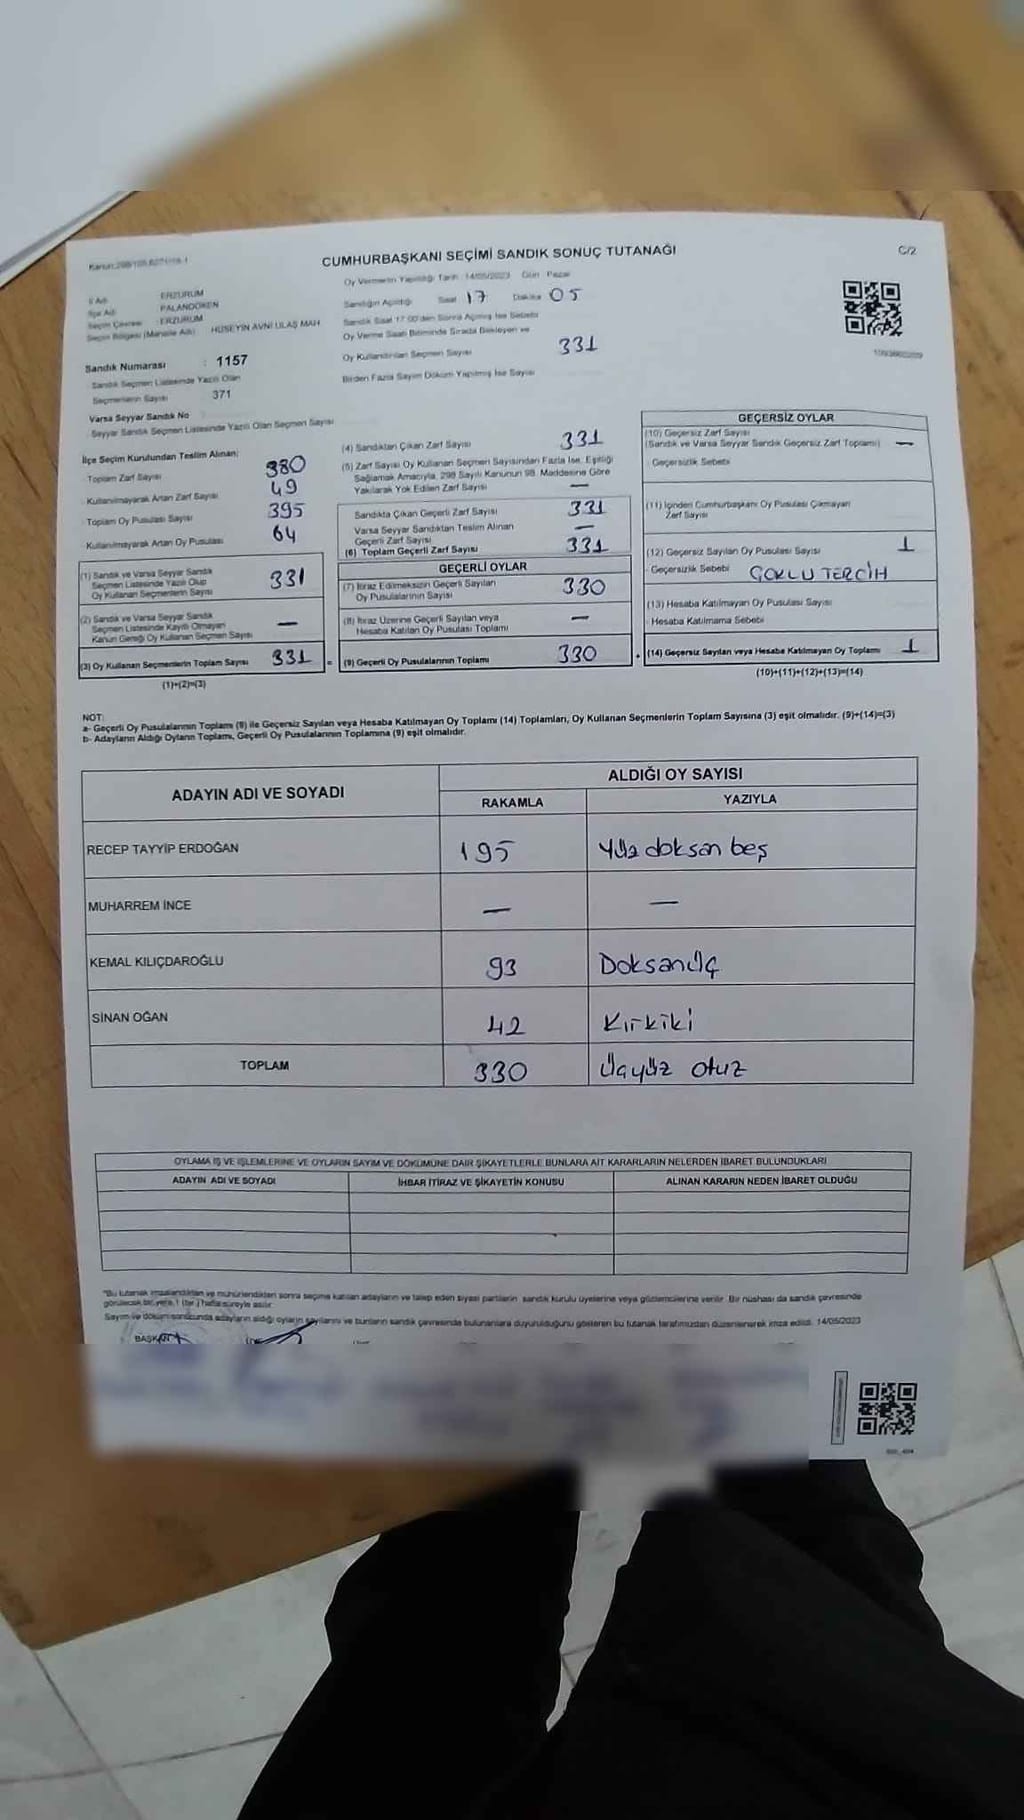 CUMHURBAŞKANI SEÇİMİ SANDIK SONUÇ TUTANAĞI
C/2
Oy Vermenin Yapıldığı Tarih 14/05/2023 Gün Pazar
İl Adı ERZURUM
İlçe Adı PALANDÖKEN
Seçim Çevresi ERZURUM
Seçim Bölgesi (Mahalle Adı) HÜSEYİN AVNİ ULAŞ MAH
Sandığın Açıldığı Saat 17 Dakika 05
Sandık Saat 17:00'den Sonra Açılmış İse Sebebi
Oy Verme Saati Bitiminde Sırada Bekleyen ve
Oy Kullandırılan Seçmen Sayısı 331
Birden Fazla Sayım Döküm Yapılmış İse Sayısı
Sandık Numarası : 1157
Sandık Seçmen Listesinde Yazılı Olan
Seçmenlerin Sayısı 371
Varsa Seyyar Sandık No
Seyyar Sandık Seçmen Listesinde Yazılı Olan Seçmen Sayısı
İlçe Seçim Kurulundan Teslim Alınan:
Toplam Zarf Sayısı 380
Kullanılmayarak Artan Zarf Sayısı 49
Toplam Oy Pusulası Sayısı 395
Kullanılmayarak Artan Oy Pusulası 64
(1) Sandık ve Varsa Seyyar Sandık
Seçmen Listesinde Yazılı Olup
Oy Kullanan Seçmenlerin Sayısı 331
(2) Sandık ve Varsa Seyyar Sandık
Seçmen Listesinde Kayıtlı Olmayan
Kanun Gereği Oy Kullanan Seçmen Sayısı —
(3) Oy Kullanan Seçmenlerin Toplam Sayısı 331
(1)+(2)=(3)
(4) Sandıktan Çıkan Zarf Sayısı 331
(5) Zarf Sayısı Oy Kullanan Seçmen Sayısından Fazla İse, Eşitliği
Sağlamak Amacıyla, 298 Sayılı Kanunun 98. Maddesine Göre
Yakılarak Yok Edilen Zarf Sayısı —
Sandıkta Çıkan Geçerli Zarf Sayısı 331
Varsa Seyyar Sandıktan Teslim Alınan
Geçerli Zarf Sayısı —
(6) Toplam Geçerli Zarf Sayısı 331
GEÇERLİ OYLAR
(7) İtiraz Edilmeksizin Geçerli Sayılan
Oy Pusulalarının Sayısı 330
(8) İtiraz Üzerine Geçerli Sayılan veya
Hesaba Katılan Oy Pusulası Toplamı —
= (9) Geçerli Oy Pusulalarının Toplamı 330
GEÇERSİZ OYLAR
(10) Geçersiz Zarf Sayısı
(Sandık ve Varsa Seyyar Sandık Geçersiz Zarf Toplamı) —
Geçersizlik Sebebi
(11) İçinden Cumhurbaşkanı Oy Pusulası Çıkmayan
Zarf Sayısı
(12) Geçersiz Sayılan Oy Pusulası Sayısı 1
Geçersizlik Sebebi ÇOKLU TERCİH
(13) Hesaba Katılmayan Oy Pusulası Sayısı
Hesaba Katılmama Sebebi
(14) Geçersiz Sayılan veya Hesaba Katılmayan Oy Toplamı 1
(10)+(11)+(12)+(13)=(14)
NOT:
a- Geçerli Oy Pusulalarının Toplamı (9) ile Geçersiz Sayılan veya Hesaba Katılmayan Oy Toplamı (14) Toplamları, Oy Kullanan Seçmenlerin Toplam Sayısına (3) eşit olmalıdır. (9)+(14)=(3)
b- Adayların Aldığı Oyların Toplamı, Geçerli Oy Pusulalarının Toplamına (9) eşit olmalıdır.
ADAYIN ADI VE SOYADI ALDIĞI OY SAYISI
RAKAMLA YAZIYLA
RECEP TAYYİP ERDOĞAN 195 Yüz doksan beş
MUHARREM İNCE — —
KEMAL KILIÇDAROĞLU 93 Doksanüç
SİNAN OĞAN 42 Kırkiki
TOPLAM 330 Üçyüz otuz
OYLAMA İŞ VE İŞLEMLERİNE VE OYLARIN SAYIM VE DÖKÜMÜNE DAİR ŞİKAYETLERLE BUNLARA AİT KARARLARIN NELERDEN İBARET BULUNDUKLARI
ADAYIN ADI VE SOYADI İHBAR İTİRAZ VE ŞİKAYETİN KONUSU ALINAN KARARIN NEDEN İBARET OLDUĞU
"Bu tutanak imzalandıktan ve mühürlendikten sonra seçime katılan adayların ve talep eden siyasi partilerin sandık kurulu üyelerine veya gözlemcilerine verilir. Bir nüshası da sandık çevresinde
görülecek bir yere 1 (bir) hafta süreyle asılır.
Sayım ve döküm sonucunda adayların aldığı oyların sayılarını ve bunların sandık çevresinde bulunanlara duyurulduğunu gösteren bu tutanak tarafımızdan düzenlenerek imza edildi. 14/05/2023
BAŞKAN